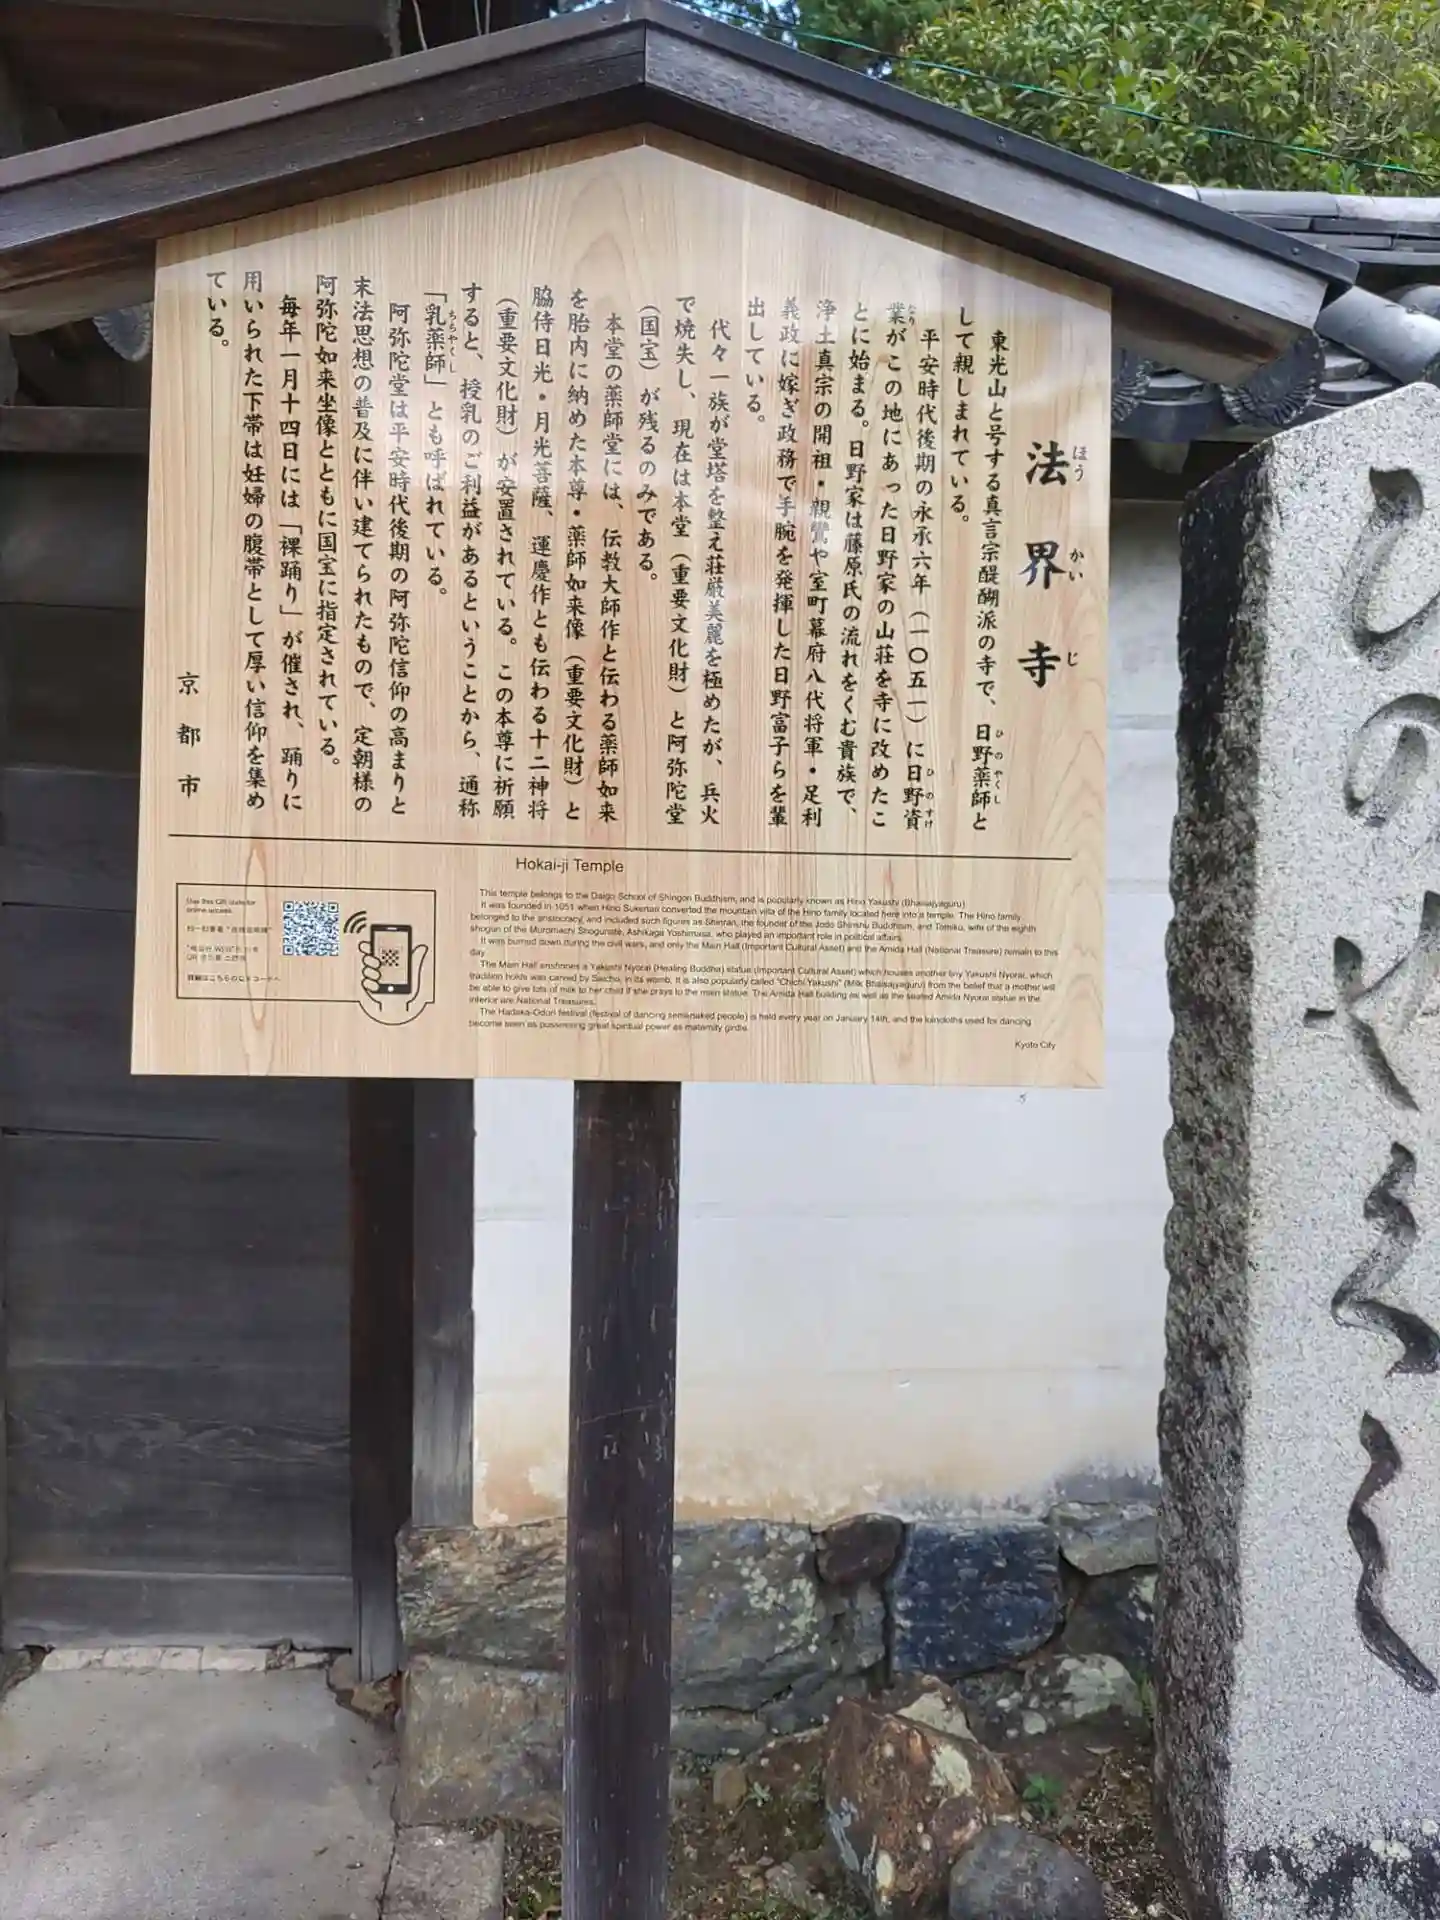 法界寺
ほうかいじ
東光山と号する真言宗醍醐派の寺で、日野薬師と
ひのやくし
して親しまれている。
平安時代後期の永承六年（一〇五一）に日野資
ひのすけ
業がこの地にあった日野家の山荘を寺に改めたこ
なり
とに始まる。日野家は藤原氏の流れをくむ貴族で、
浄土真宗の開祖・親鸞や室町幕府八代将軍・足利
義政に嫁ぎ政務で手腕を発揮した日野富子らを輩
出している。
代々一族が堂塔を整え荘厳美麗を極めたが、兵火
で焼失し、現在は本堂（重要文化財）と阿弥陀堂
（国宝）が残るのみである。
本堂の薬師堂には、伝教大師作と伝わる薬師如来
を胎内に納めた本尊・薬師如来像（重要文化財）と
脇侍日光・月光菩薩、運慶作とも伝わる十二神将
（重要文化財）が安置されている。この本尊に祈願
すると、授乳のご利益があるということから、通称
「乳薬師」とも呼ばれている。
ちちやくし
阿弥陀堂は平安時代後期の阿弥陀信仰の高まりと
末法思想の普及に伴い建てられたもので、定朝様の
阿弥陀如来坐像とともに国宝に指定されている。
毎年一月十四日には「裸踊り」が催され、踊りに
用いられた下帯は妊婦の腹帯として厚い信仰を集め
ている。
京都市
Hokai-ji Temple
This temple belongs to the Daigo School of Shingon Buddhism, and is popularly known as Hino Yakushi (Bhaisajyaguru)
It was founded in 1051 when Hino Sukenari converted the mountain villa of the Hino family located here into a temple. The Hino family
belonged to the aristocracy, and included such figures as Shinran, the founder of the Jodo Shinshu Buddhism, and Tomiko, wife of the eighth
shogun of the Muromachi Shogunate, Ashikaga Yoshimasa, who played an important role in political affairs.
It was burned down during the civil wars, and only the Main Hall (Important Cultural Asset) and the Amida Hall (National Treasure) remain to this
day.
The Main Hall enshrines a Yakushi Nyorai (Healing Buddha) statue (Important Cultural Asset) which houses another tiny Yakushi Nyorai, which
tradition holds was carved by Saicho, in its womb. It is also popularly called "Chichi Yakushi" (Milk Bhaisajyaguru) from the belief that a mother will
be able to give lots of milk to her child if she prays to the main statue. The Amida Hall building as well as the seated Amida Nyorai statue in the
interior are National Treasures.
The Hadaka-Odori festival (festival of dancing seminaked people) is held every year on January 14th, and the loincloths used for dancing
become seen as possessing great spiritual power as maternity girdle.
Kyoto City
Use this QR code for
online access.
詳細はこちらのQRコードへ
ひのやくし